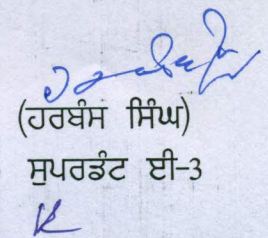 (ਹਰਬੰਸ ਸਿੰਘ)
ਸੁਪਰਡੰਟ ਈ-3